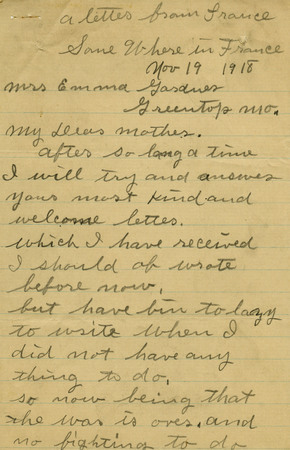 a letter from France
Some Where in France
Nov 19 1918
Mrs Emma Gardner
Greentop Mo.
My Dear mother.
after so long a time
I will try and answer
your most kind and
welcome letter.
which I have received
I should of wrote
before now,
but have bin to lazy
to write when I
did not have any
thing to do,
so now being that
the was is over, and
no fighting to do